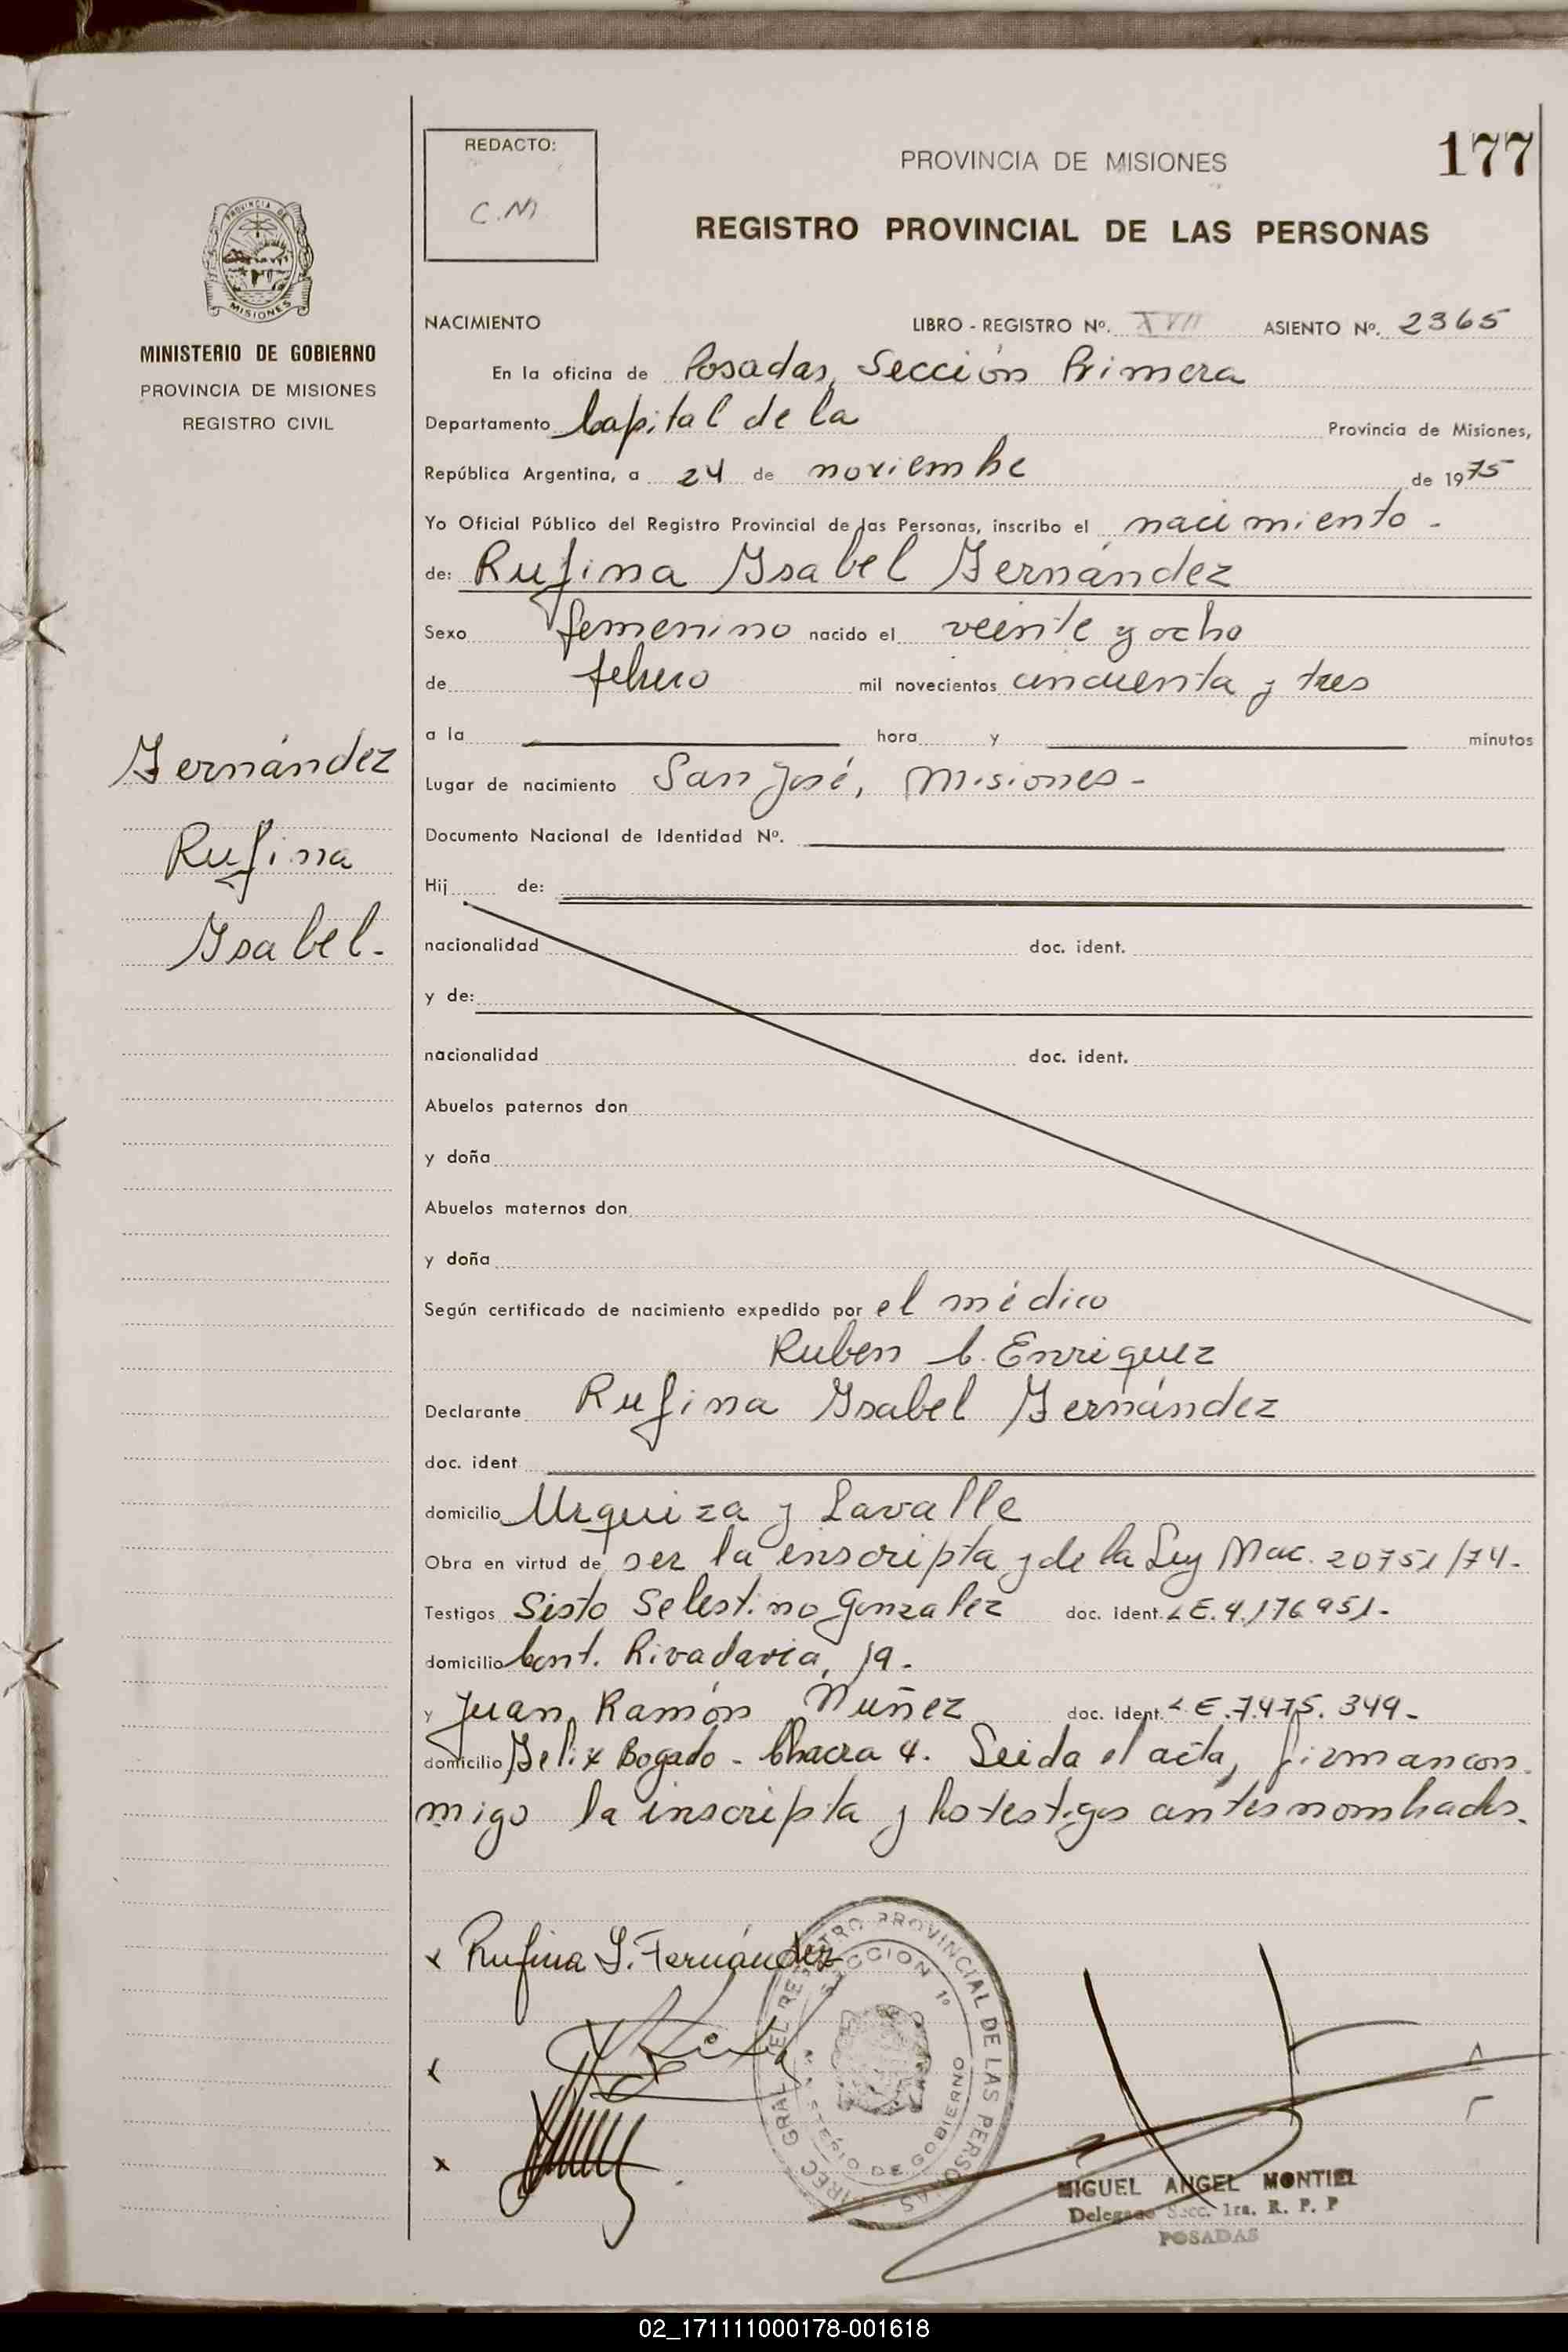 177
REDACTO:
C.M
PROVINCIA DE MISIONES
REGISTRO PROVINCIAL DE LAS PERSONAS
PROVINCIA DE
MISIONES
MINISTERIO DE GOBIERNO
PROVINCIA DE MISIONES
REGISTRO CIVIL
Fernández
Rufina
Ysabel-
NACIMIENTO LIBRO - REGISTRO Nº. XVII ASIENTO Nº. 2365
En la oficina de Posadas, Sección Primera
Departamento Capital de la Provincia de Misiones,
República Argentina, a 24 de noviembre de 1975
Yo Oficial Público del Registro Provincial de las Personas, inscribo el nacimiento -
de: Rufina Ysabel Fernández
Sexo femenino nacido el veinte y ocho
de febrero mil novecientos cincuenta y tres
a la hora y minutos
Lugar de nacimiento San José, Misiones-
Documento Nacional de Identidad Nº.
Hij de:
nacionalidad doc. ident.
y de:
nacionalidad doc. ident.
Abuelos paternos don
y doña
Abuelos maternos don
y doña
Según certificado de nacimiento expedido por el médico
Ruben C. Enriquez
Declarante Rufina Ysabel Fernández
doc. ident
domicilio Urquiza y Lavalle
Obra en virtud de ser la inscripta y de la Ley Nac. 20751/74-
Testigos Sisto Selestino Gonzalez doc. ident. LE.4.176951-
domicilio Cont. Rivadavia, 19.
y Juan Ramón Nuñez doc. ident. LE.7.475.349-
domicilio Felix Bogado - Chacra 4. Leida el acta, firman con
migo la inscripta y los testigos antes nombrados.
x Rufina Y. Fernández
x
DIREC GRAL DEL REGISTRO PROVINCIAL DE LAS PERSONAS
SECCION 1º
MINISTERIO DE GOBIERNO
MIGUEL ANGEL MONTIEL
Delegado Secc. 1ra. R. P. P
POSADAS
02_171111000178-001618